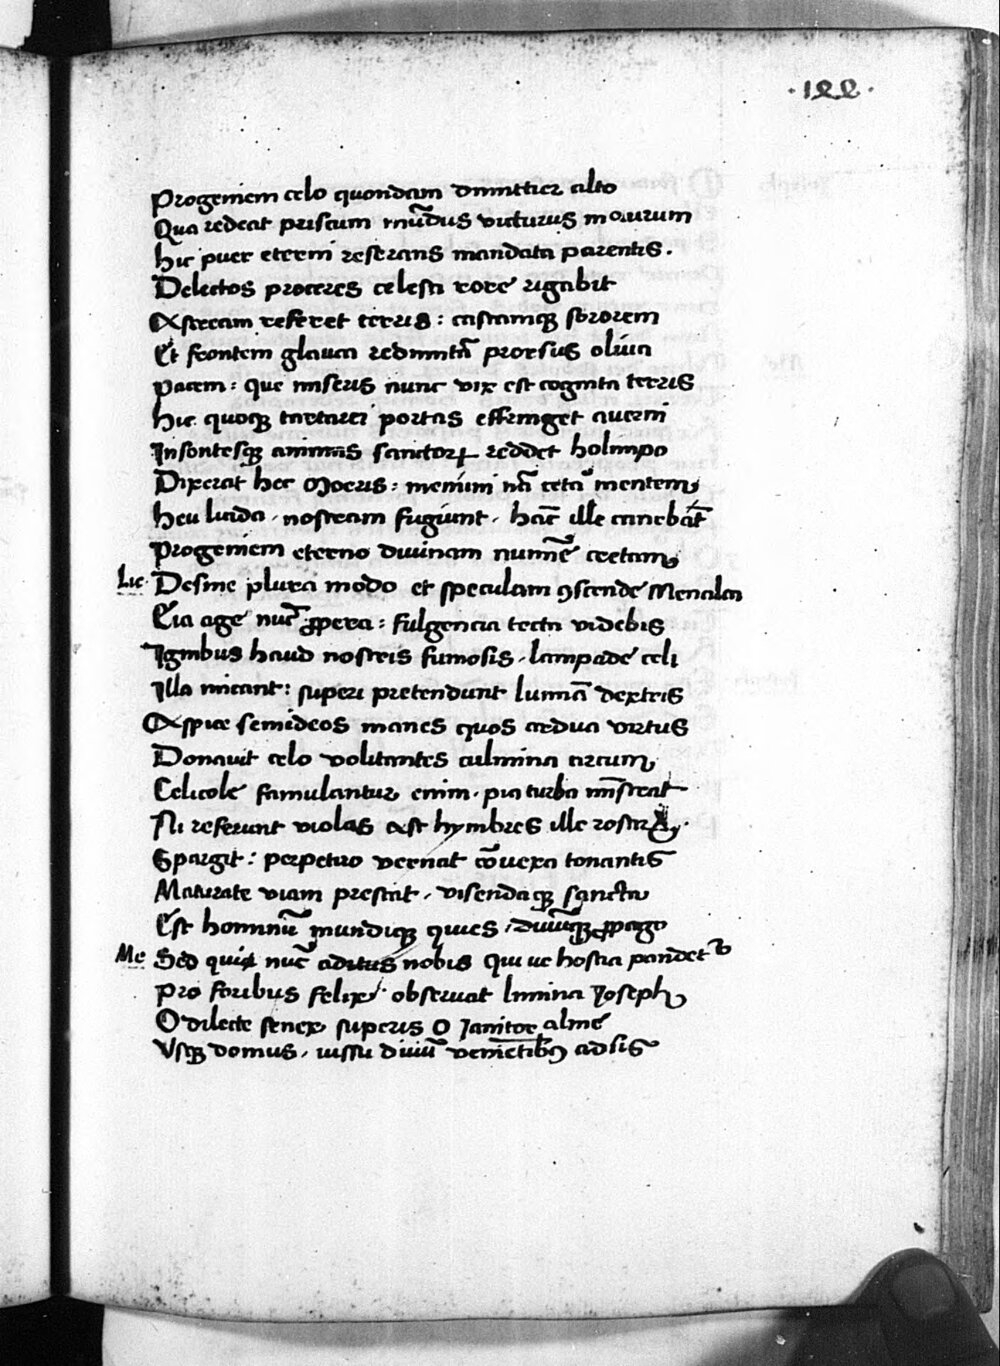 ·122·
Progeniem celo quondam dimittier alto
Qua redeat priscum mūdus victurus in aurum
hic puer eterni reserans mandata parentis.
Delectos proceres celesti rore rigabit
Astream referet terris: castamqꝫ sororem
Et frontem glauca redimitā prorsus oliva
pacem: que miseris nunc vix est cognita terris
hic quoqꝫ tartarei portas effringet averni
Insontesqꝫ animas sanctoꝝ reddet holimpo
Dixerat hec Moeris: memini nā cetā mentem
heu lurida, nostram fugiunt, hāc ille canebāt
Progeniem eterno divinam numīe cretam
Lic. Desine plura modo et speculam ꝯscende Menalca
Eia age nūc ꝓpera: fulgencia tecta videbis
Ignibus haud nostris fumosis, lampade celi
Illa micant: superi pretendunt lumīa dextris
Aspice semideos manes quos ardua virtus
Donavit celo volitantes culmina circum
Celicole famulantur enim, pia turba mīstrat
Ni referunt violas ast hymbres ille
Spargit: perpetuo vernat cōvexa tonantis
Maturate viam prestat, visendaqꝫ sancta
Est hominū mundiqꝫ quies, divūqꝫ ꝓpago
Me Sed quis nūc aditus nobis qui ve hostia pandet
Pro foribus felix observat limina Joseph
O dilecte senex superis O Janitor alme
Usqꝫ domus, iussu divū venīetibꝰ adsis